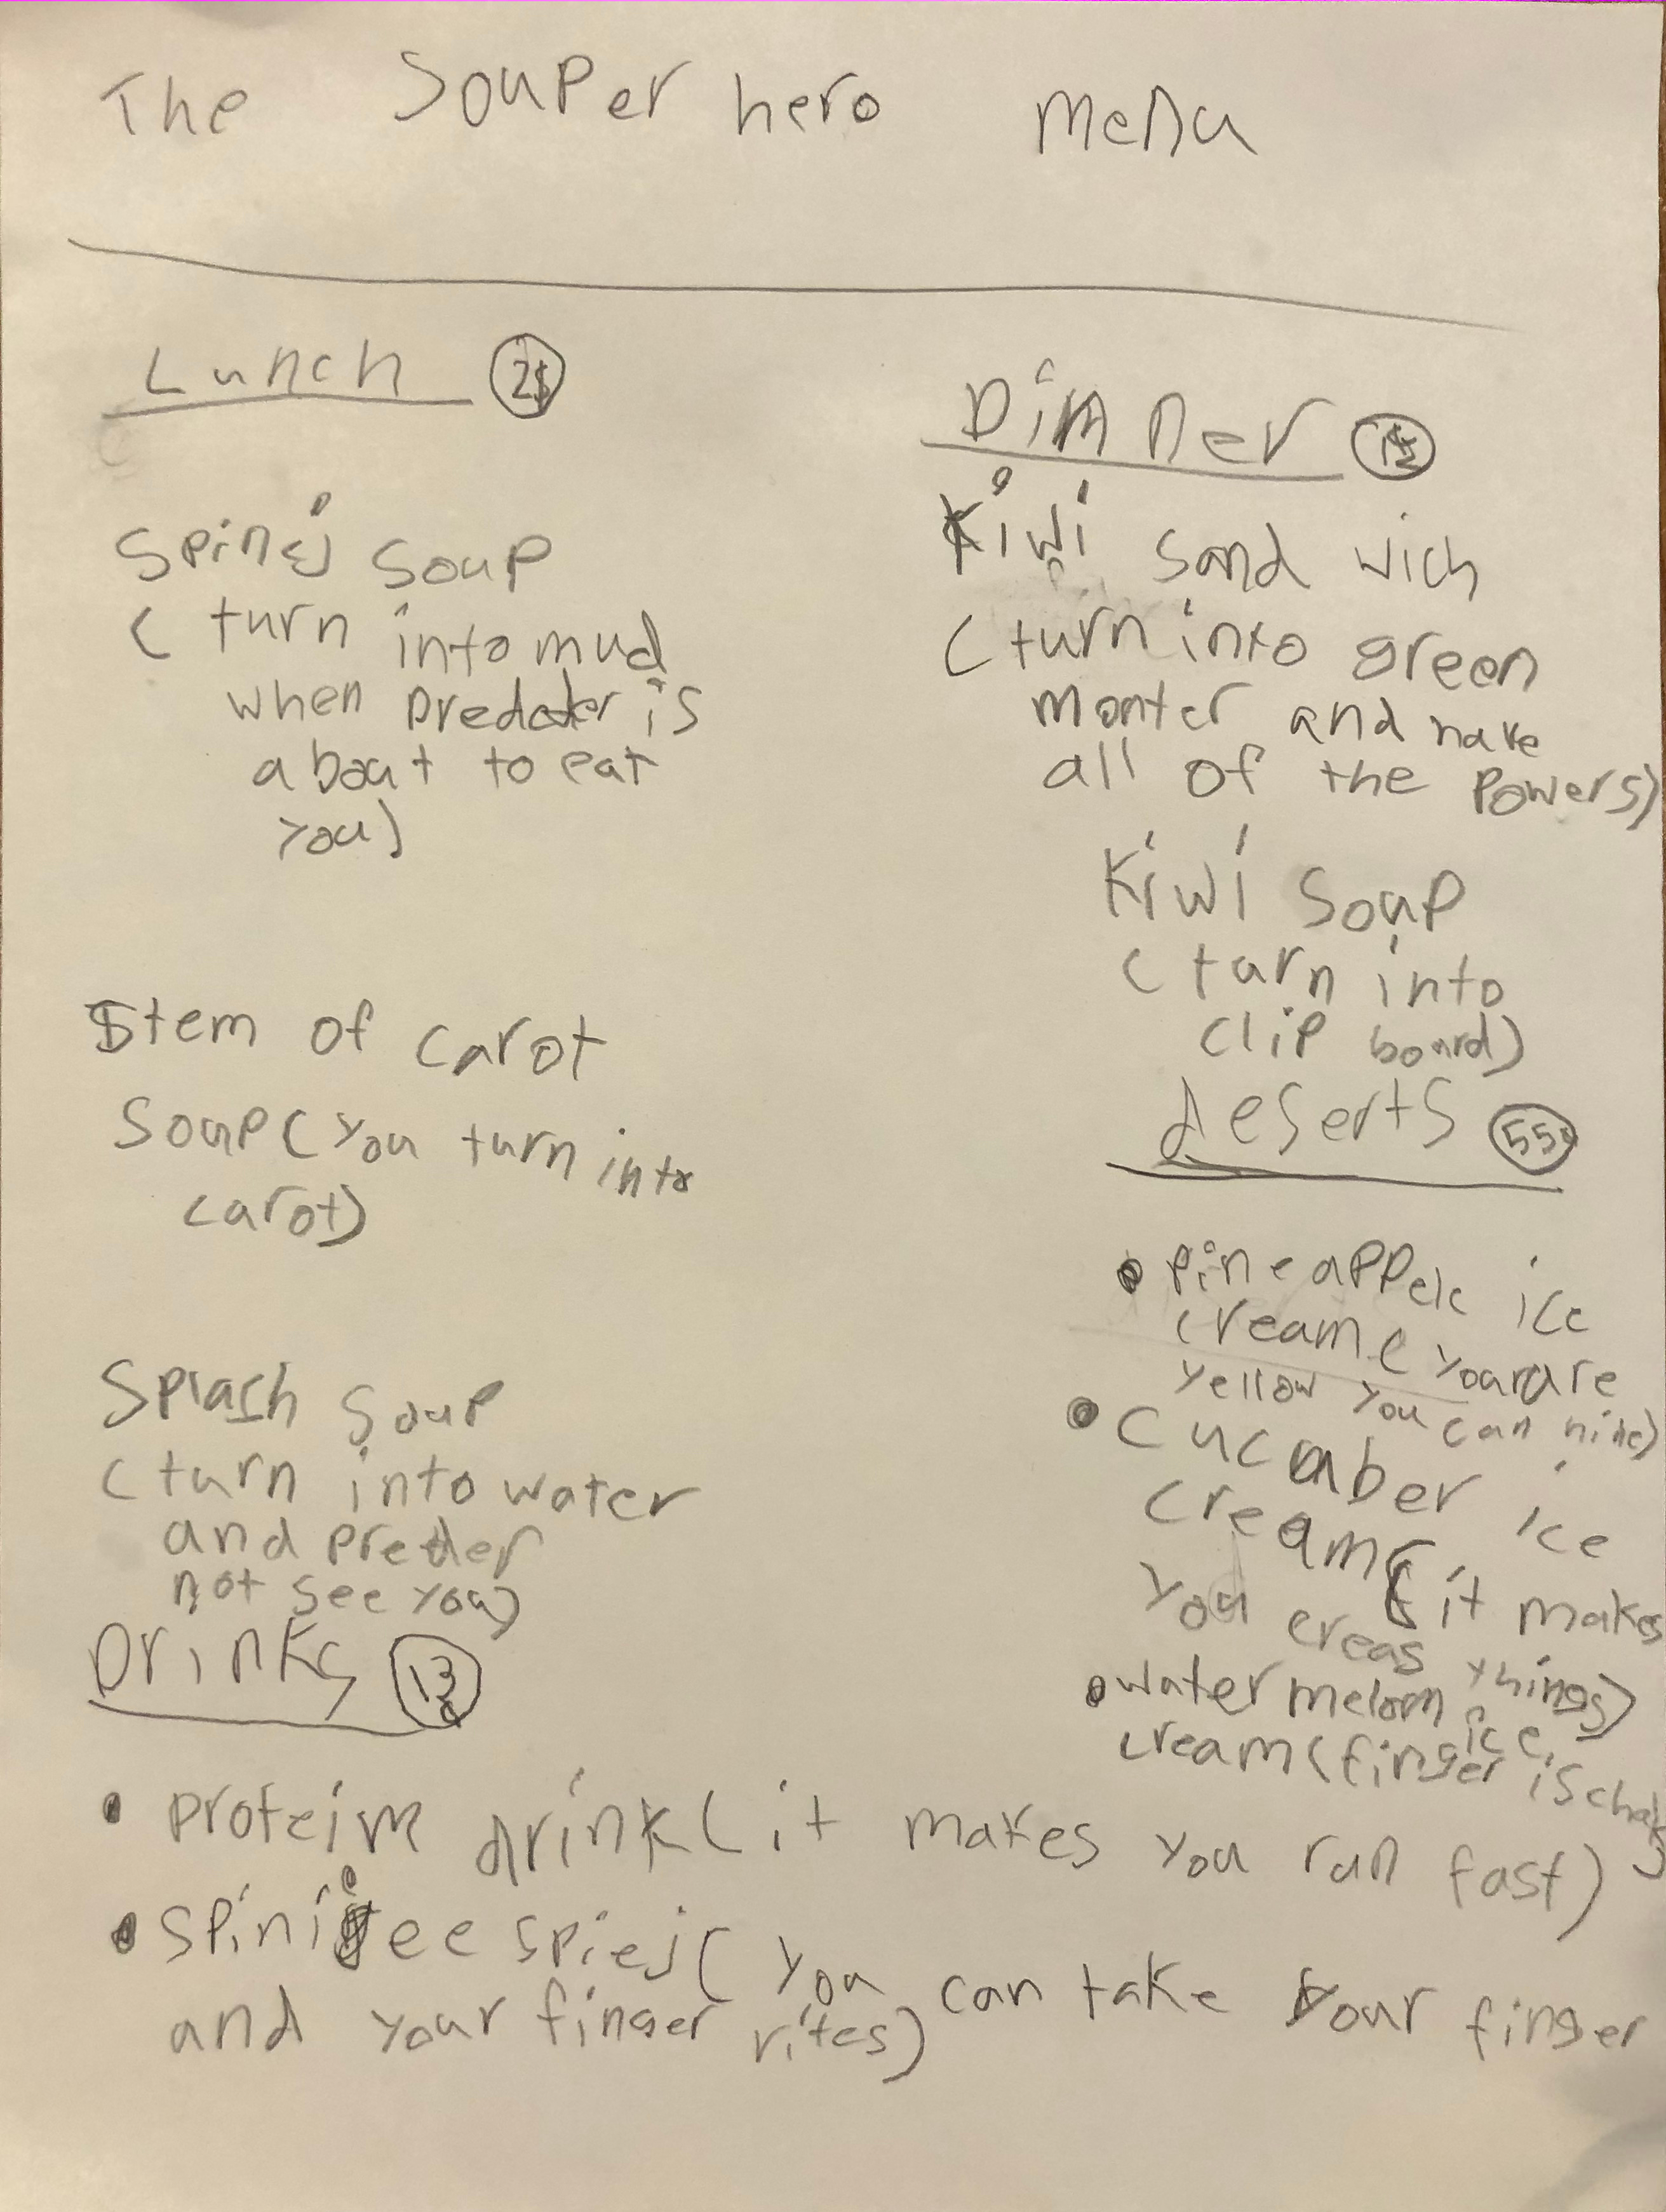 The Souper hero menu
Lunch 2$
soup
( turn into mud
when predater is
about to eat
you)
Stem of carot
Soup (you turn into
carot)
Splash soup
(turn into water
and
not see you)
Drinks 13
Dinner
Kiwi sand wich
(turn into green
monter and have
all of the Powers)
Kiwi Soup
(turn into
clip board)
deserts 55
• Pineappele ice
cream (you are
yellow you can hide)
• Cucamber ice
cream (it makes
you creas things)
• water melon ice
cream (finger is
• protein drink (it makes you run fast)
• (you can take your finger
and your finger rites)